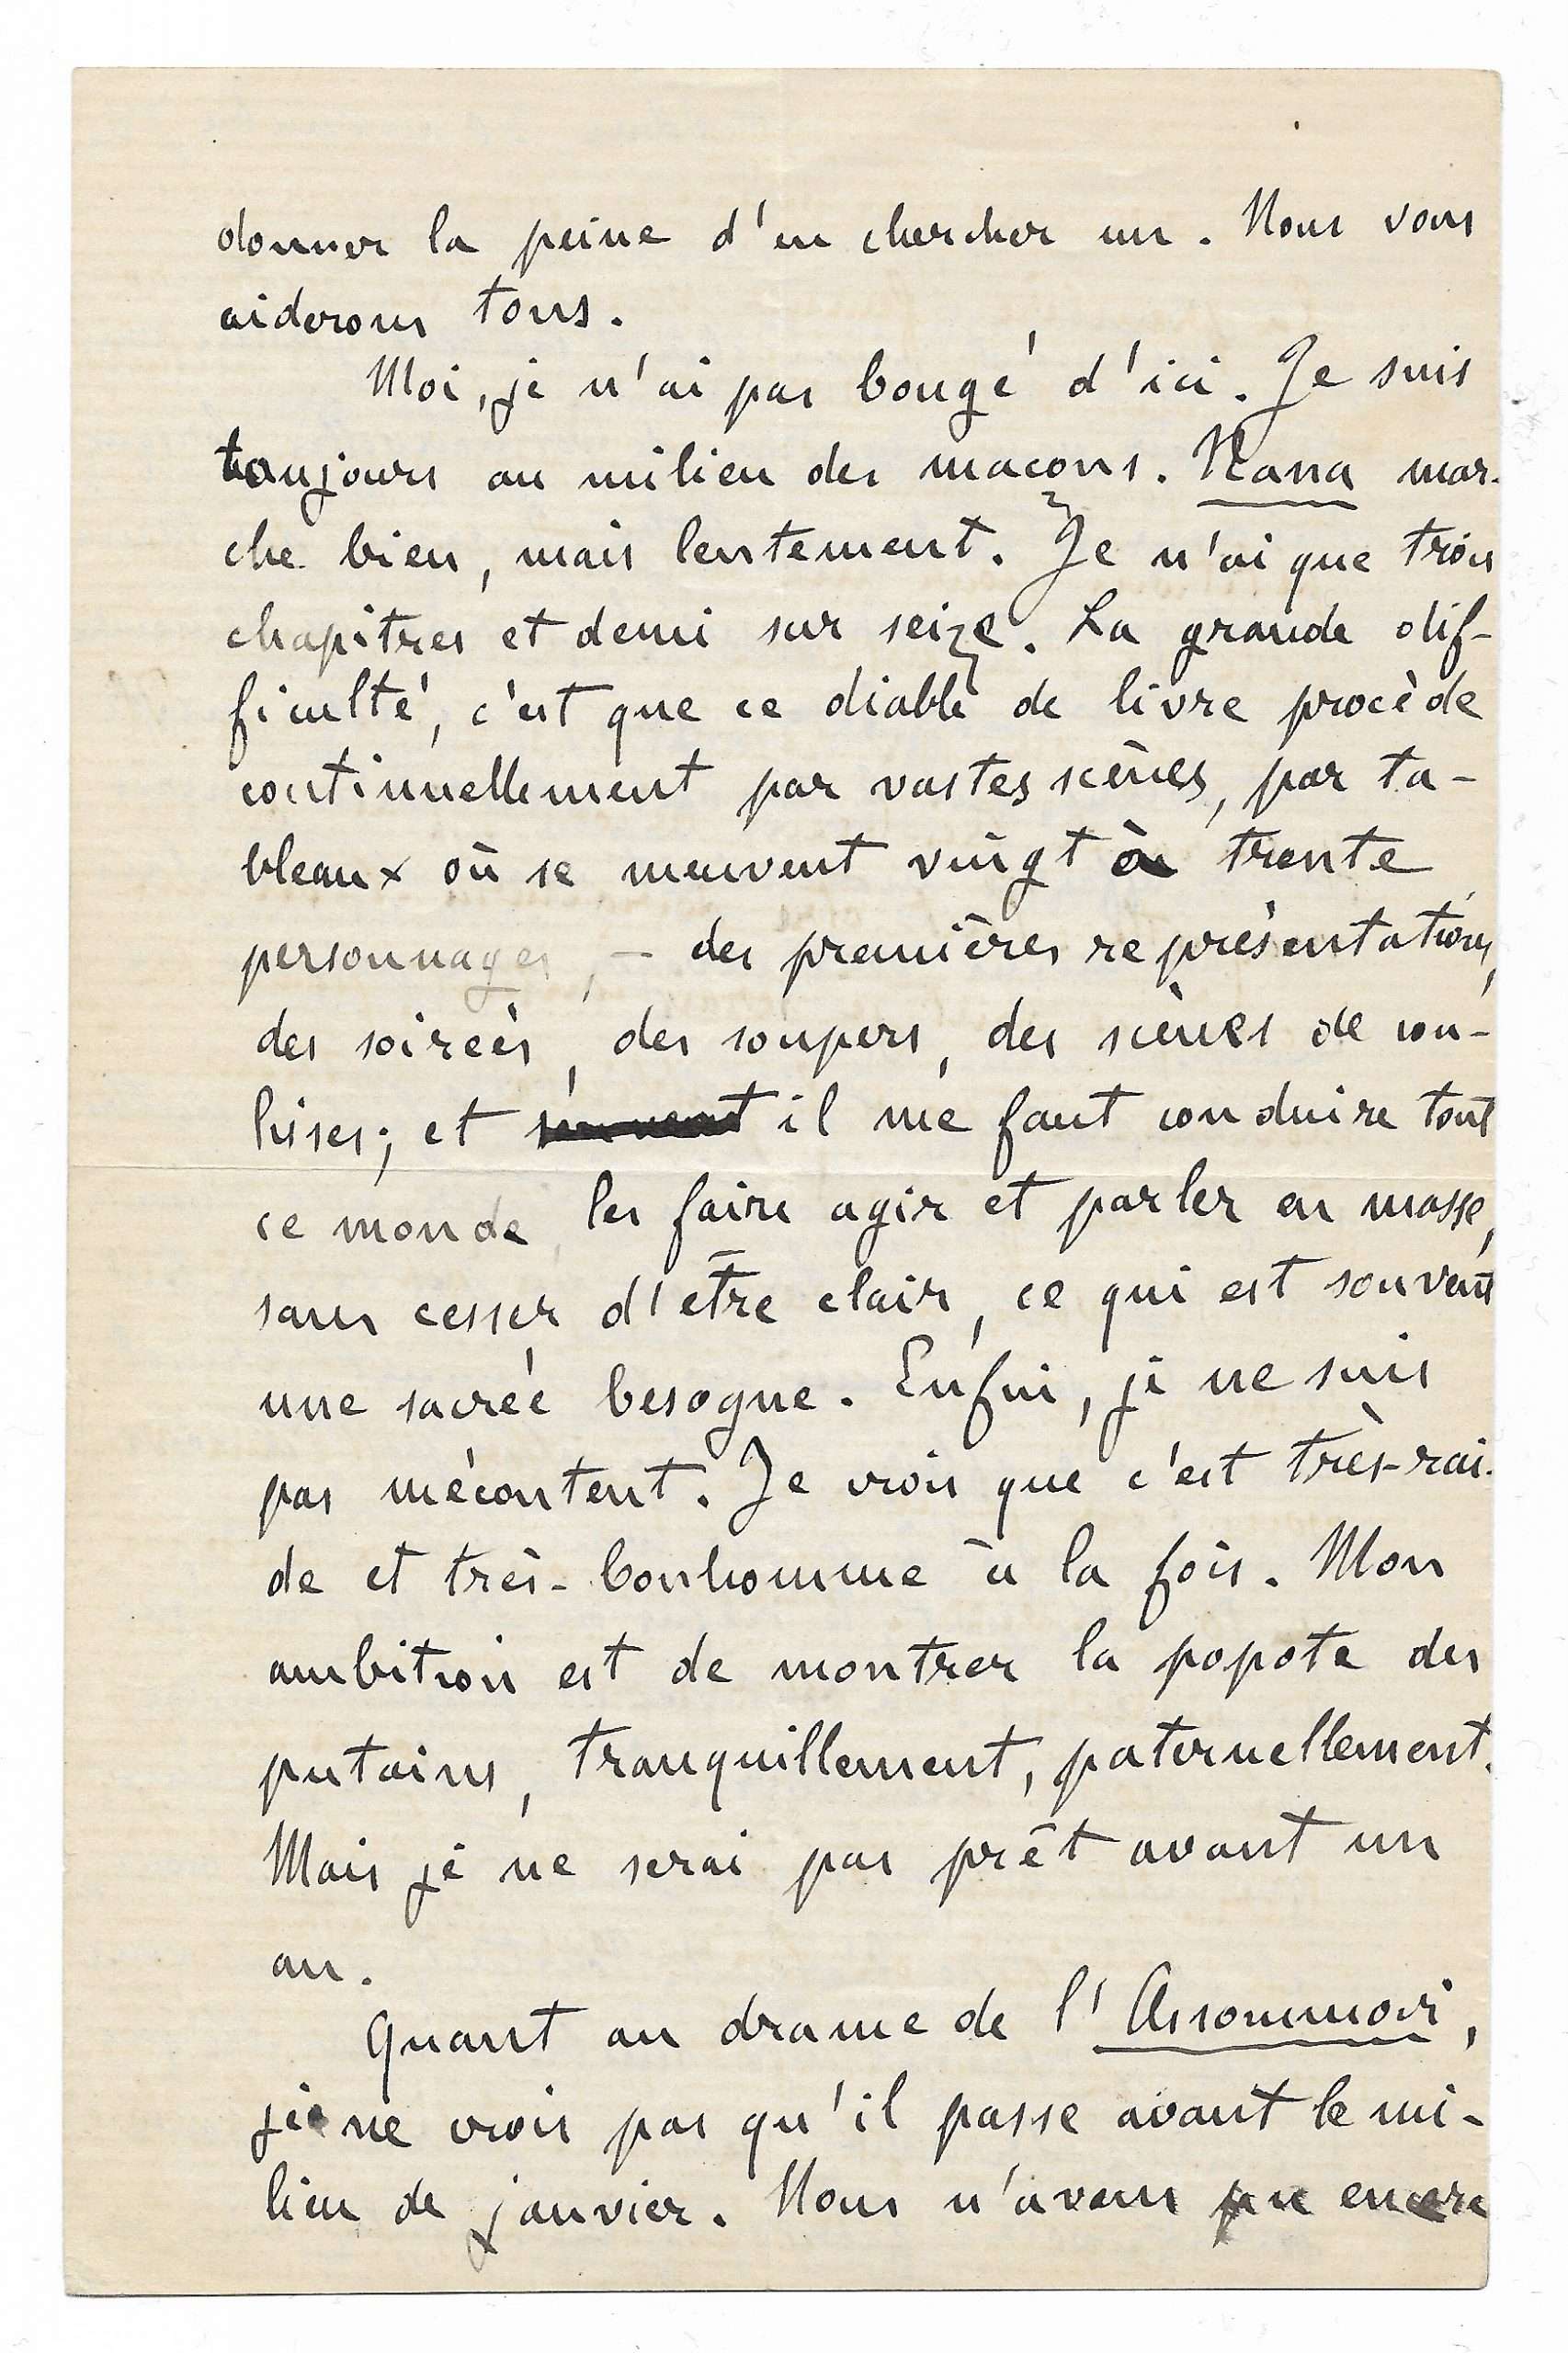 donner la peine d'en chercher un. Nous vous
aiderons tous.
Moi, je n'ai pas bougé d'ici. Je suis
toujours au milieu des maçons. Nana mar-
che bien, mais lentement. Je n'ai que trois
chapitres et demi sur seize. La grande dif-
ficulté, c'est que ce diable de livre procède
continuellement par vastes scènes, par ta-
bleaux où se meuvent vingt à trente
personnages, – des premières représentations,
des soirées, des soupers, des scènes de cou-
lisses; et il me faut conduire tout
ce monde, les faire agir et parler en masse,
sans cesser d'être clair, ce qui est souvent
une sacrée besogne. Enfin, je ne suis
pas mécontent. Je crois que c'est très-rai-
de et très-bonhomme à la fois. Mon
ambition est de montrer la popote des
putains, tranquillement, paternellement.
Mais je ne serai pas prêt avant un
an.
Quant au drame de l'Assommoir,
je ne crois pas qu'il passe avant le mi-
lieu de janvier. Nous n'avons encore